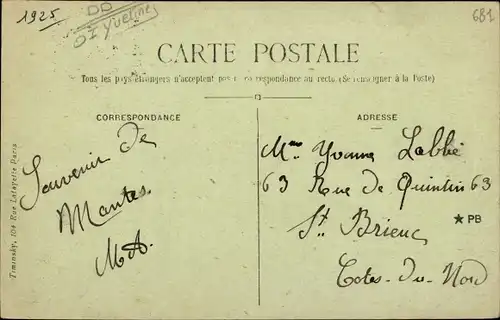 1925
DD
OI Yveline
681
CARTE POSTALE
Tous les pays étrangers n'acceptent pas correspondance au recto (Se renseigner à la Poste)
CORRESPONDANCE
Souvenir de
Mantes.
MA.
ADRESSE
Mme Yvonne Labbé
63 Rue de Quintin 63
St Brieuc
Cotes-du-Nord
★ PB
Timinsky, 104 Rue Lafayette Paris